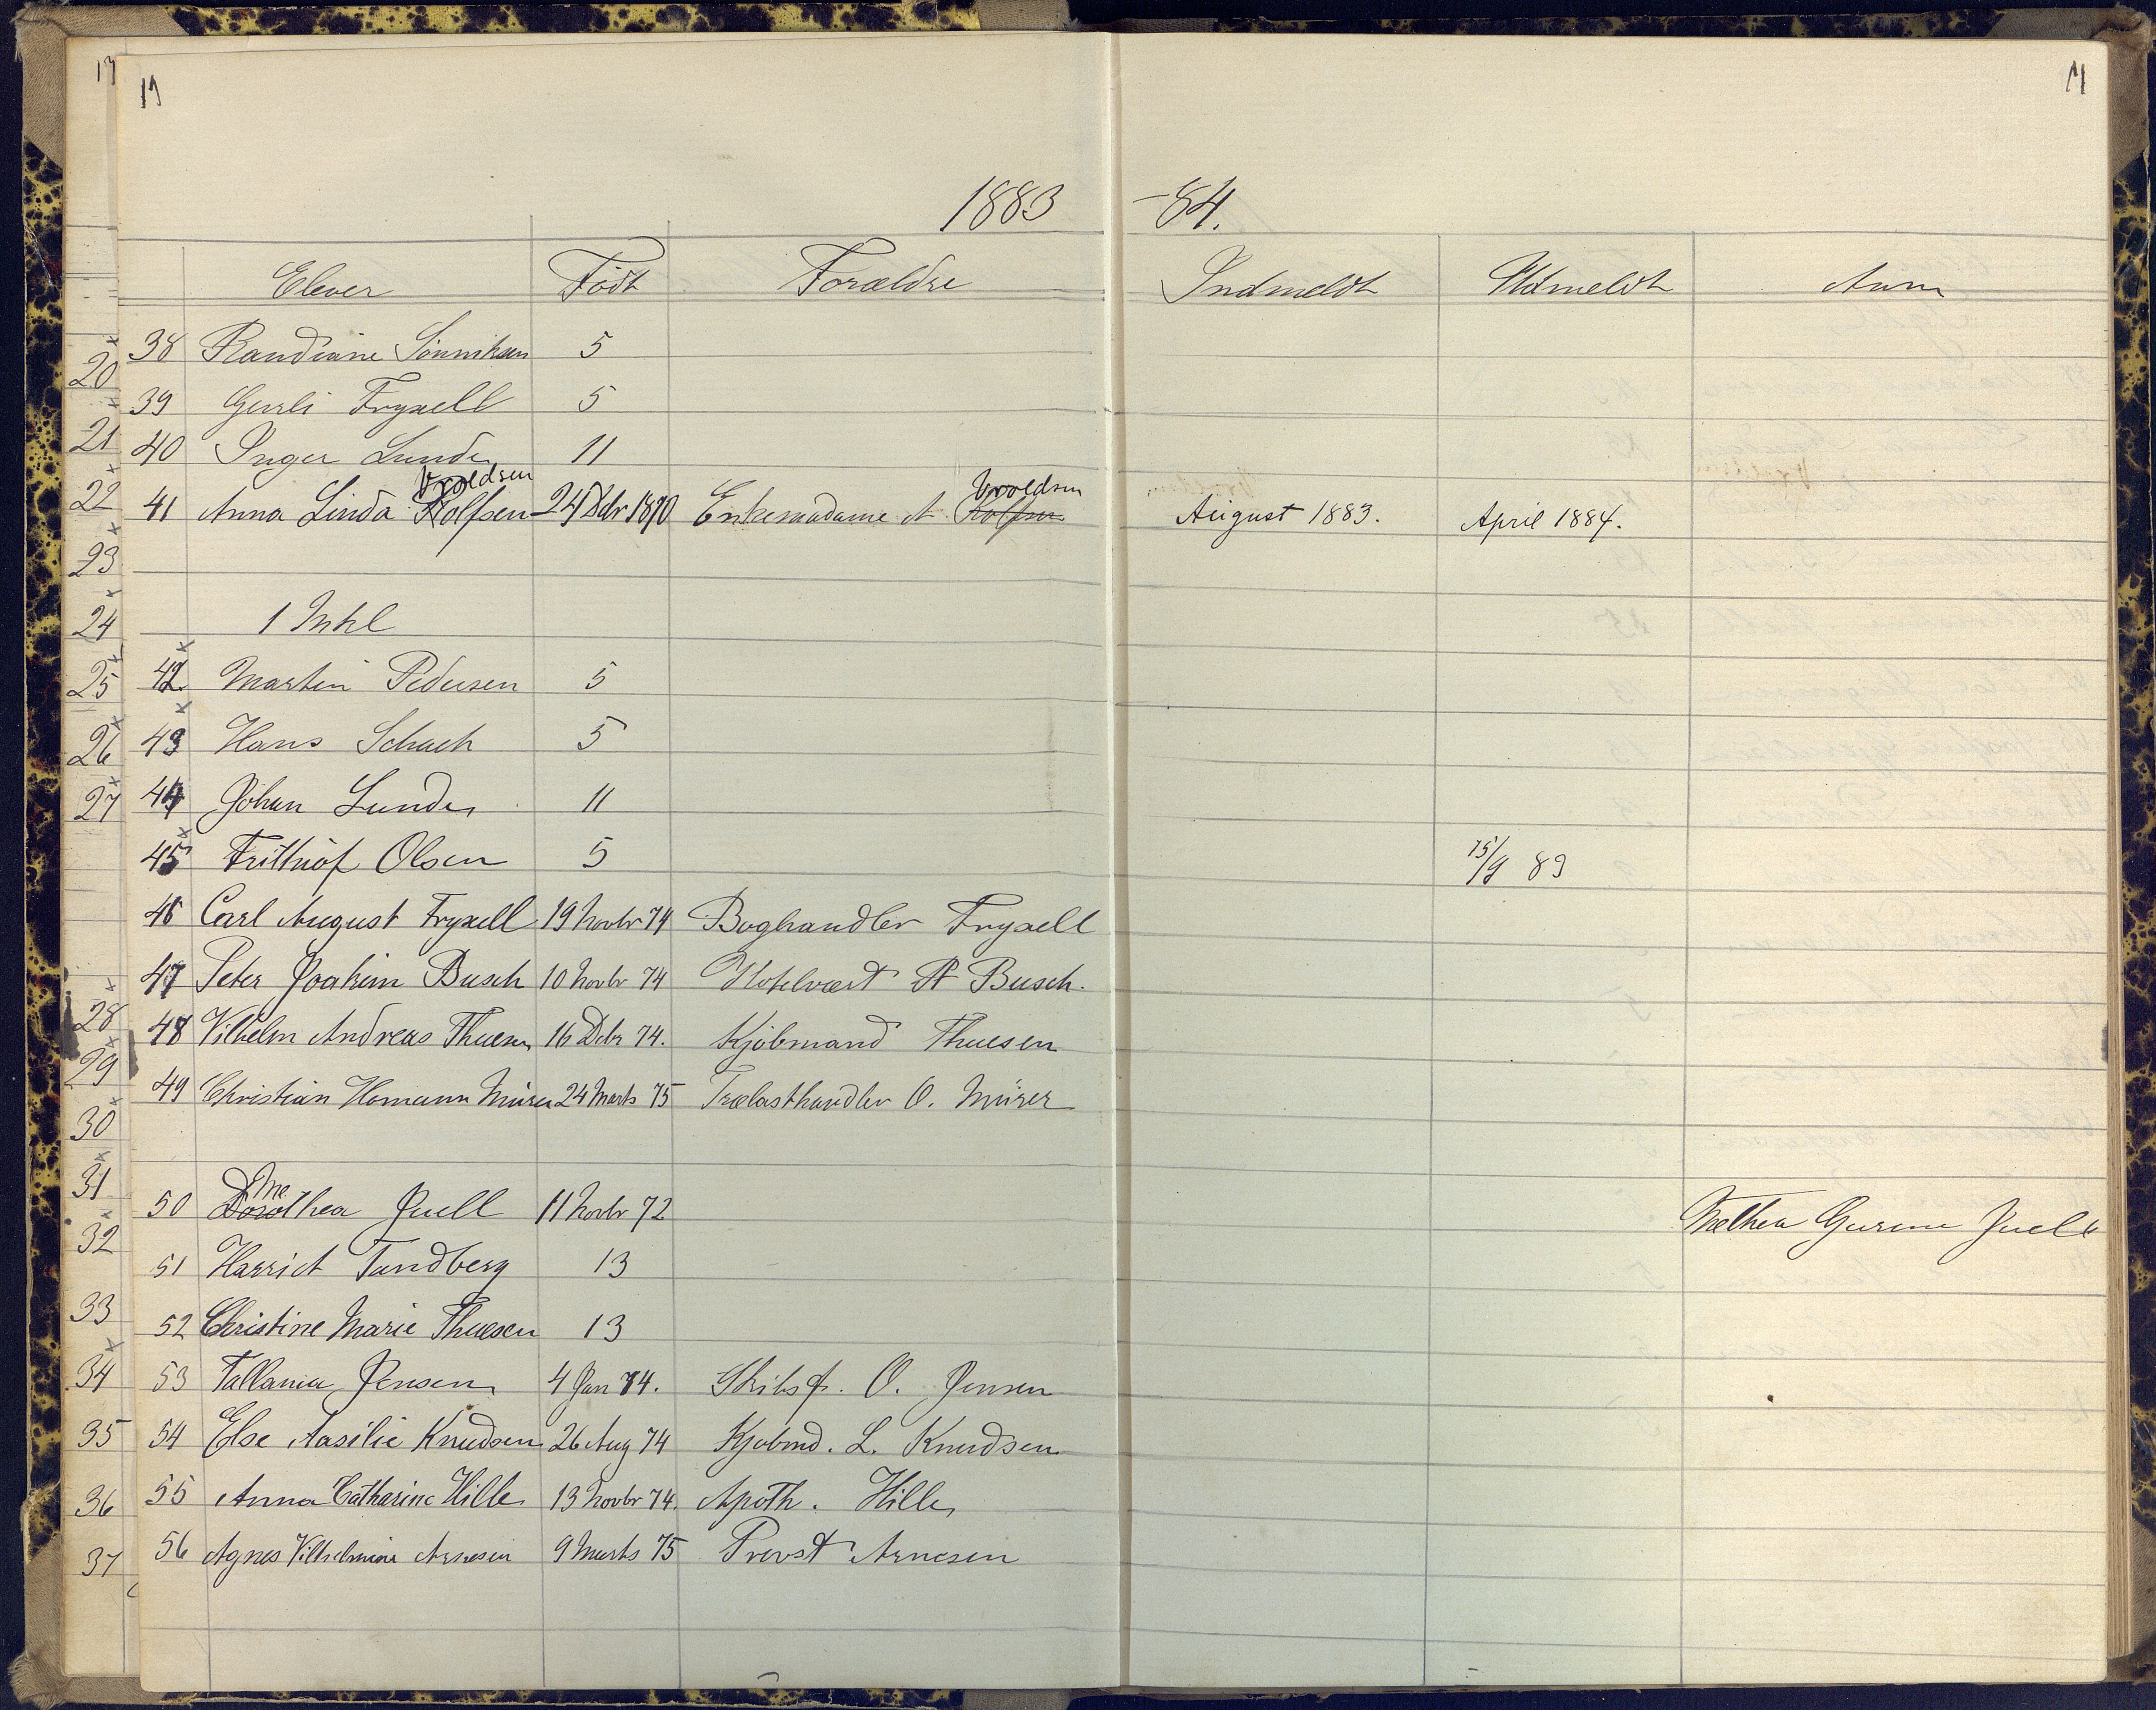 17
17
17
1883 -84.
Elever Födt Forældre Indmeldt Udmeldt Anm
20 38 Randiane Sönniksen 5
39 Gerli Fryxell 5
21 40 Inger Lunde 11
Vroldsen Vroldsen
22 41 Anna Linda Rolfsen 24 Dbr 1870 Enkemadame A Rolfsen August 1883. April 1884.
23
24 1 Mkl
25 42 Martin Pedersen 5
26 43 Hans Schach 5
27 44 Johan Lunde 11
45 Frithiof Olsen 5 15/9 83
46 Carl August Fryxell 19 Novbr 74 Boghandler Fryxell
47 Peter Joakim Busch 10 Novbr 74 Hotelvært P Busch.
28 48 Vilhelm Andreas Thuesen 16 Debr 74. Kjöbmand Thuesen
29 49 Christian Homann Mürer 24 Marts 75 Trælasthandler O. Mürer
30
31
Me
50 Dorothea Juell 11 Novbr 72 Methea Gurine Juell
32
51 Harriet Tandberg 13
33 52 Christine Marie Thuesen 13
34 53 Tallania Jensen 4 Jan 74. Skibsf. O. Jensen
35 54 Else Aasilie Knudsen 26 Aug 74 Kjöbmd. L. Knudsen
36 55 Anna Catharine Hille 13 Novbr 74. Apoth. Hille
37 56 Agnes Vilhelmine Arnesen 9 Marts 75 Provst Arnesen